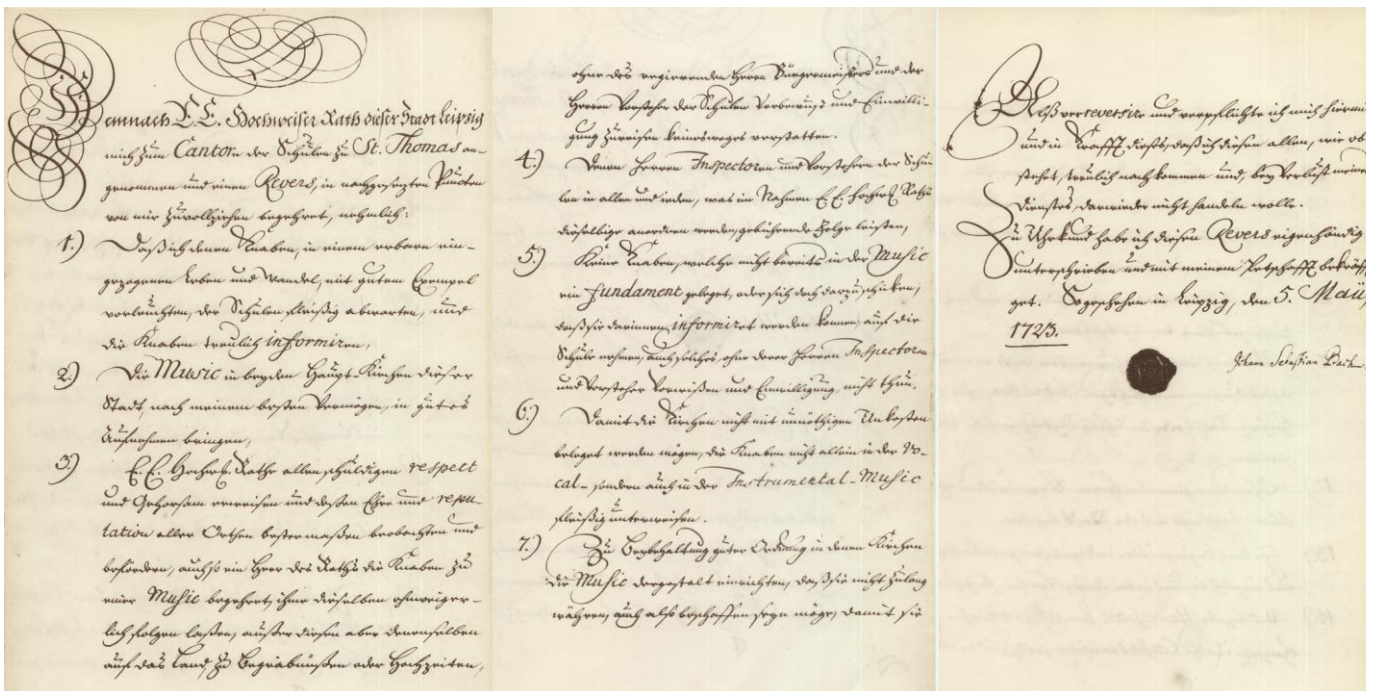 Demnach E. E. Hochweiser Rath dieser Stadt Leipzig
mich zum Cantorn der Schulen zu St. Thomas an-
genommen und einen Revers, in nachgesezten Puncten
von mir zu vollziehen begehret, nehmlich:
1.) Daß ich denen Knaben, in einem erbarn ein-
gezogenen Leben und Wandel, mit gutem Exempel
vorleuchten, der Schulen fleißig abwarten, und
die Knaben treulich informiren,
2.) Die Music in beyden Haupt-Kirchen dieser
Stadt, nach meinem besten Vermögen, in gutes
Aufnehmen bringen,
3.) E. E. Hochw. Rathe allen schuldigen respect
und Gehorsam erweisen und deßen Ehre und repu-
tation aller Orthen bestermaßen beobachten und
befördern, auch so ein Herr des Raths die Knaben zu
einer Music begehret, ihme dieselben ohnweiger-
lich folgen laßen, außer diesen aber denenselben
auf das Land, zu Begräbnüßen oder Hochzeiten,
ohne des regierenden Herrn Bürgermeisters und der
Herren Vorsteher der Schulen Vorbewust und Einwilli-
gung zu reisen keinesweges verstatten.
4.) Denen Herren Inspectoren und Vorstehern der Schu-
len in allen und ieden, was im Nahmen E. E. Hochw. Raths
dieselbige anordnen werden, gebührende Folge leisten,
5.) Keine Knaben, welche nicht bereits in der Music
ein fundament geleget, oder sich doch darzu schicken,
daß sie darinnen informiret werden können, auf die
Schule nehmen, auch solches, ohne derer Herren Inspectoren
und Vorsteher Vorwißen und Einwilligung, nicht thun.
6.) Damit die Kirchen nicht mit unnöthigen Unkosten
beleget werden mögen, die Knaben nicht allein in der Vo-
cal- sondern auch in der Instrumental-Music
fleißig unterweisen.
7.) Zu Beybehaltung guter Ordnung in denen Kirchen
die Music dergestalt einrichten, daß sie nicht zu lang
währen, auch also beschaffen seyn möge, damit sie
reversire und verpflichte ich mich hiermi
und in Krafft dieses, daß ich diesen allen, wie ob
stehet, treulich nachkommen und, bey Verlust meines
Dienstes, darwieder nicht handeln wolle.
Zu Uhrkund habe ich diesen Revers eigenhändig
unterschrieben und mit meinem Petschafft bekräff
get. So geschehen in Leipzig, den 5. Maii,
1723.
Johann Sebastian Bach